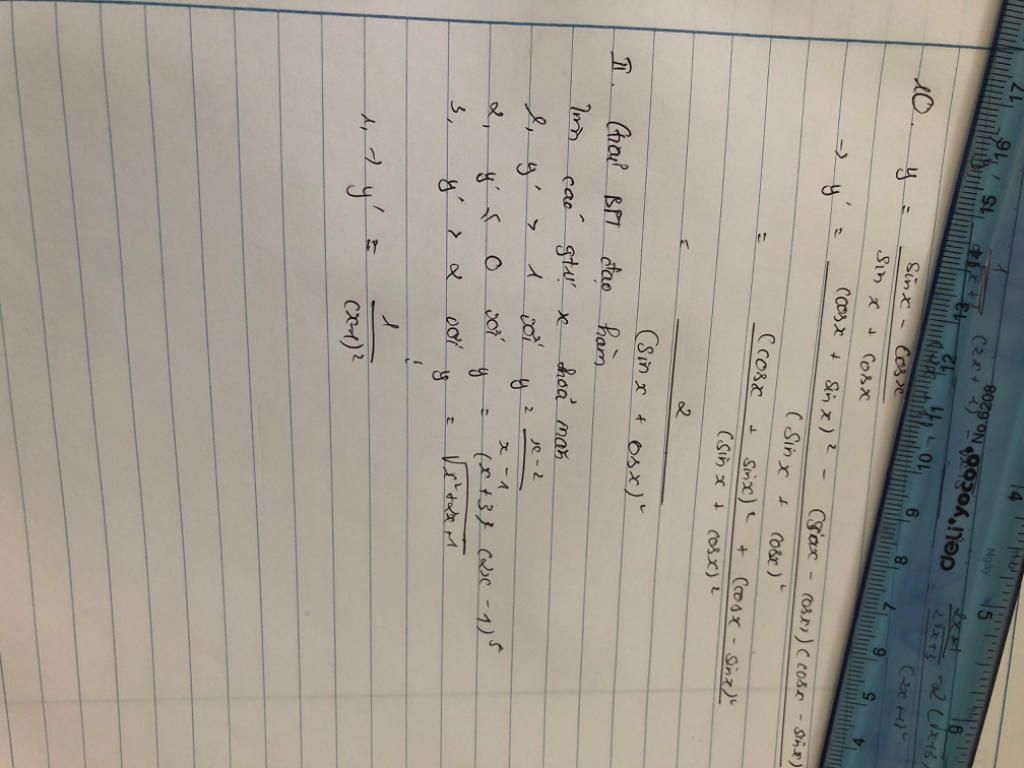 10. y = (sinx - cosx) / (sin x + cosx)
-> y' = ((cosx + sinx)² - (sinx - cosx)(cosx - sinx)) / (sinx + cosx)²
= ((cosx + sinx)² + (cosx - sinx)²) / (sinx + cosx)²
= 2 / (sinx + cosx)²
II. Giải BPT đạo hàm
Tìm các giá trị x thoả mãn
1, y' > 1 với y = (x-2) / (x-1)
2, y' ≤ 0 với y = (x+3)³ (2x-1)⁵
3, y' > 2 với y = √(x²+2x+1)
1, -> y' = 1 / (x-1)²
deli·yoyo
No.6208
Ngày